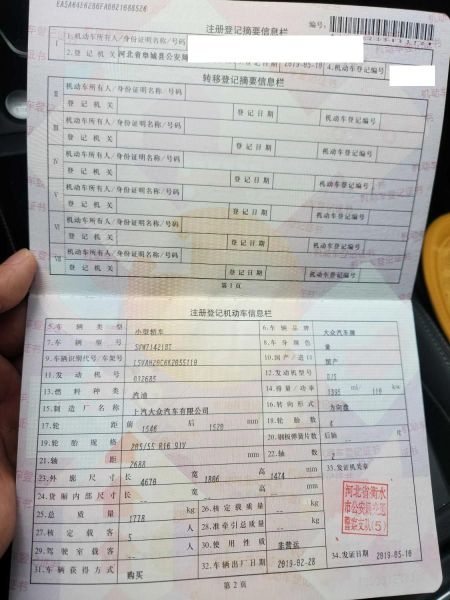 注册登记摘要信息栏
编号:
I
1.机动车所有人/身份证明名称/号码
2.登记机关 河北省阜城县公安局 2019-05-10 4.机动车登记编号
转移登记摘要信息栏
II 机动车所有人/身份证明名称/号码
登记机关 登记日期 机动车登记编号
III 机动车所有人/身份证明名称/号码
登记机关 登记日期 机动车登记编号
IV 机动车所有人/身份证明名称/号码
登记机关 登记日期 机动车登记编号
V 机动车所有人/身份证明名称/号码
登记机关 登记日期 机动车登记编号
VI 机动车所有人/身份证明名称/号码
登记机关 登记日期 机动车登记编号
VII 机动车所有人/身份证明名称/号码
登记机关 登记日期 机动车登记编号
第1页
注册登记机动车信息栏
5.车辆类型 小型轿车 6.车辆品牌 大众汽车牌
7.车辆型号 8.车身颜色
9.车辆识别代号/车架号 10.国产/进口 国产
11.发动机号 032685 12.发动机型号 DJS
13.燃料种类 汽油 14.排量/功率 1395 ml/ 110 kw
15.制造厂名称 上汽大众汽车有限公司 16.转向形式 方向盘
17.轮距 前 1546 后 1520 mm 18.轮胎数 4
19.轮胎规格 205/55 R16 91V 20.钢板弹簧片数 后轴
21.轴距 2688 mm 22.轴数 2
23.外廓尺寸 长 4670 宽 1806 高 1474 mm 33.发证机关章
24.货厢内部尺寸 长 宽 高 mm
25.总质量 1778 kg 26.核定载质量 kg
27.核定载客 5 人 28.准牵引总质量 kg
29.驾驶室载客 人 30.使用性质 非营运
31.车辆获得方式 购买 32.车辆出厂日期 2019-02-28 34.发证日期 2019-05-10
河北省衡水
市公安局交通
警察支队(5)
第2页